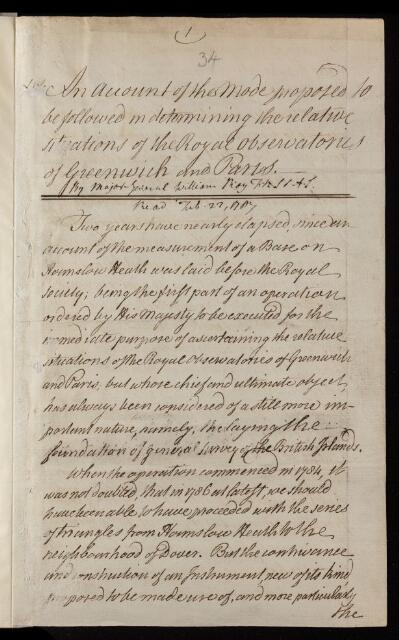 (1)
34
An Account of the Mode proposed to
be followed in determining the relative
situations of the Royal Observatories
of Greenwich and Paris.
By Major General William Roy F.R.S. & A.S.
Read Feb. 22, 1787
Two years have nearly elapsed, since an
account of the measurement of a Base on
Hounslow Heath was laid before the Royal
Society; being the first part of an operation
ordered by His Majesty to be executed for the
immediate purpose of ascertaining the relative
situations of the Royal Observatories of Greenwich
and Paris, but whose chief and ultimate object
has always been considered of a still more im-
portant nature, namely, the laying the
foundation of general survey of the British Islands.
When the operation commenced in 1784, it
was not doubted, that in 1786 at latest, we should
have been able to have proceeded with the series
of triangles from Hounslow Heath to the
neighbourhood of Dover. But the contrivance
and construction of an Instrument new of its kind,
proposed to be made use of, and more particularly
the